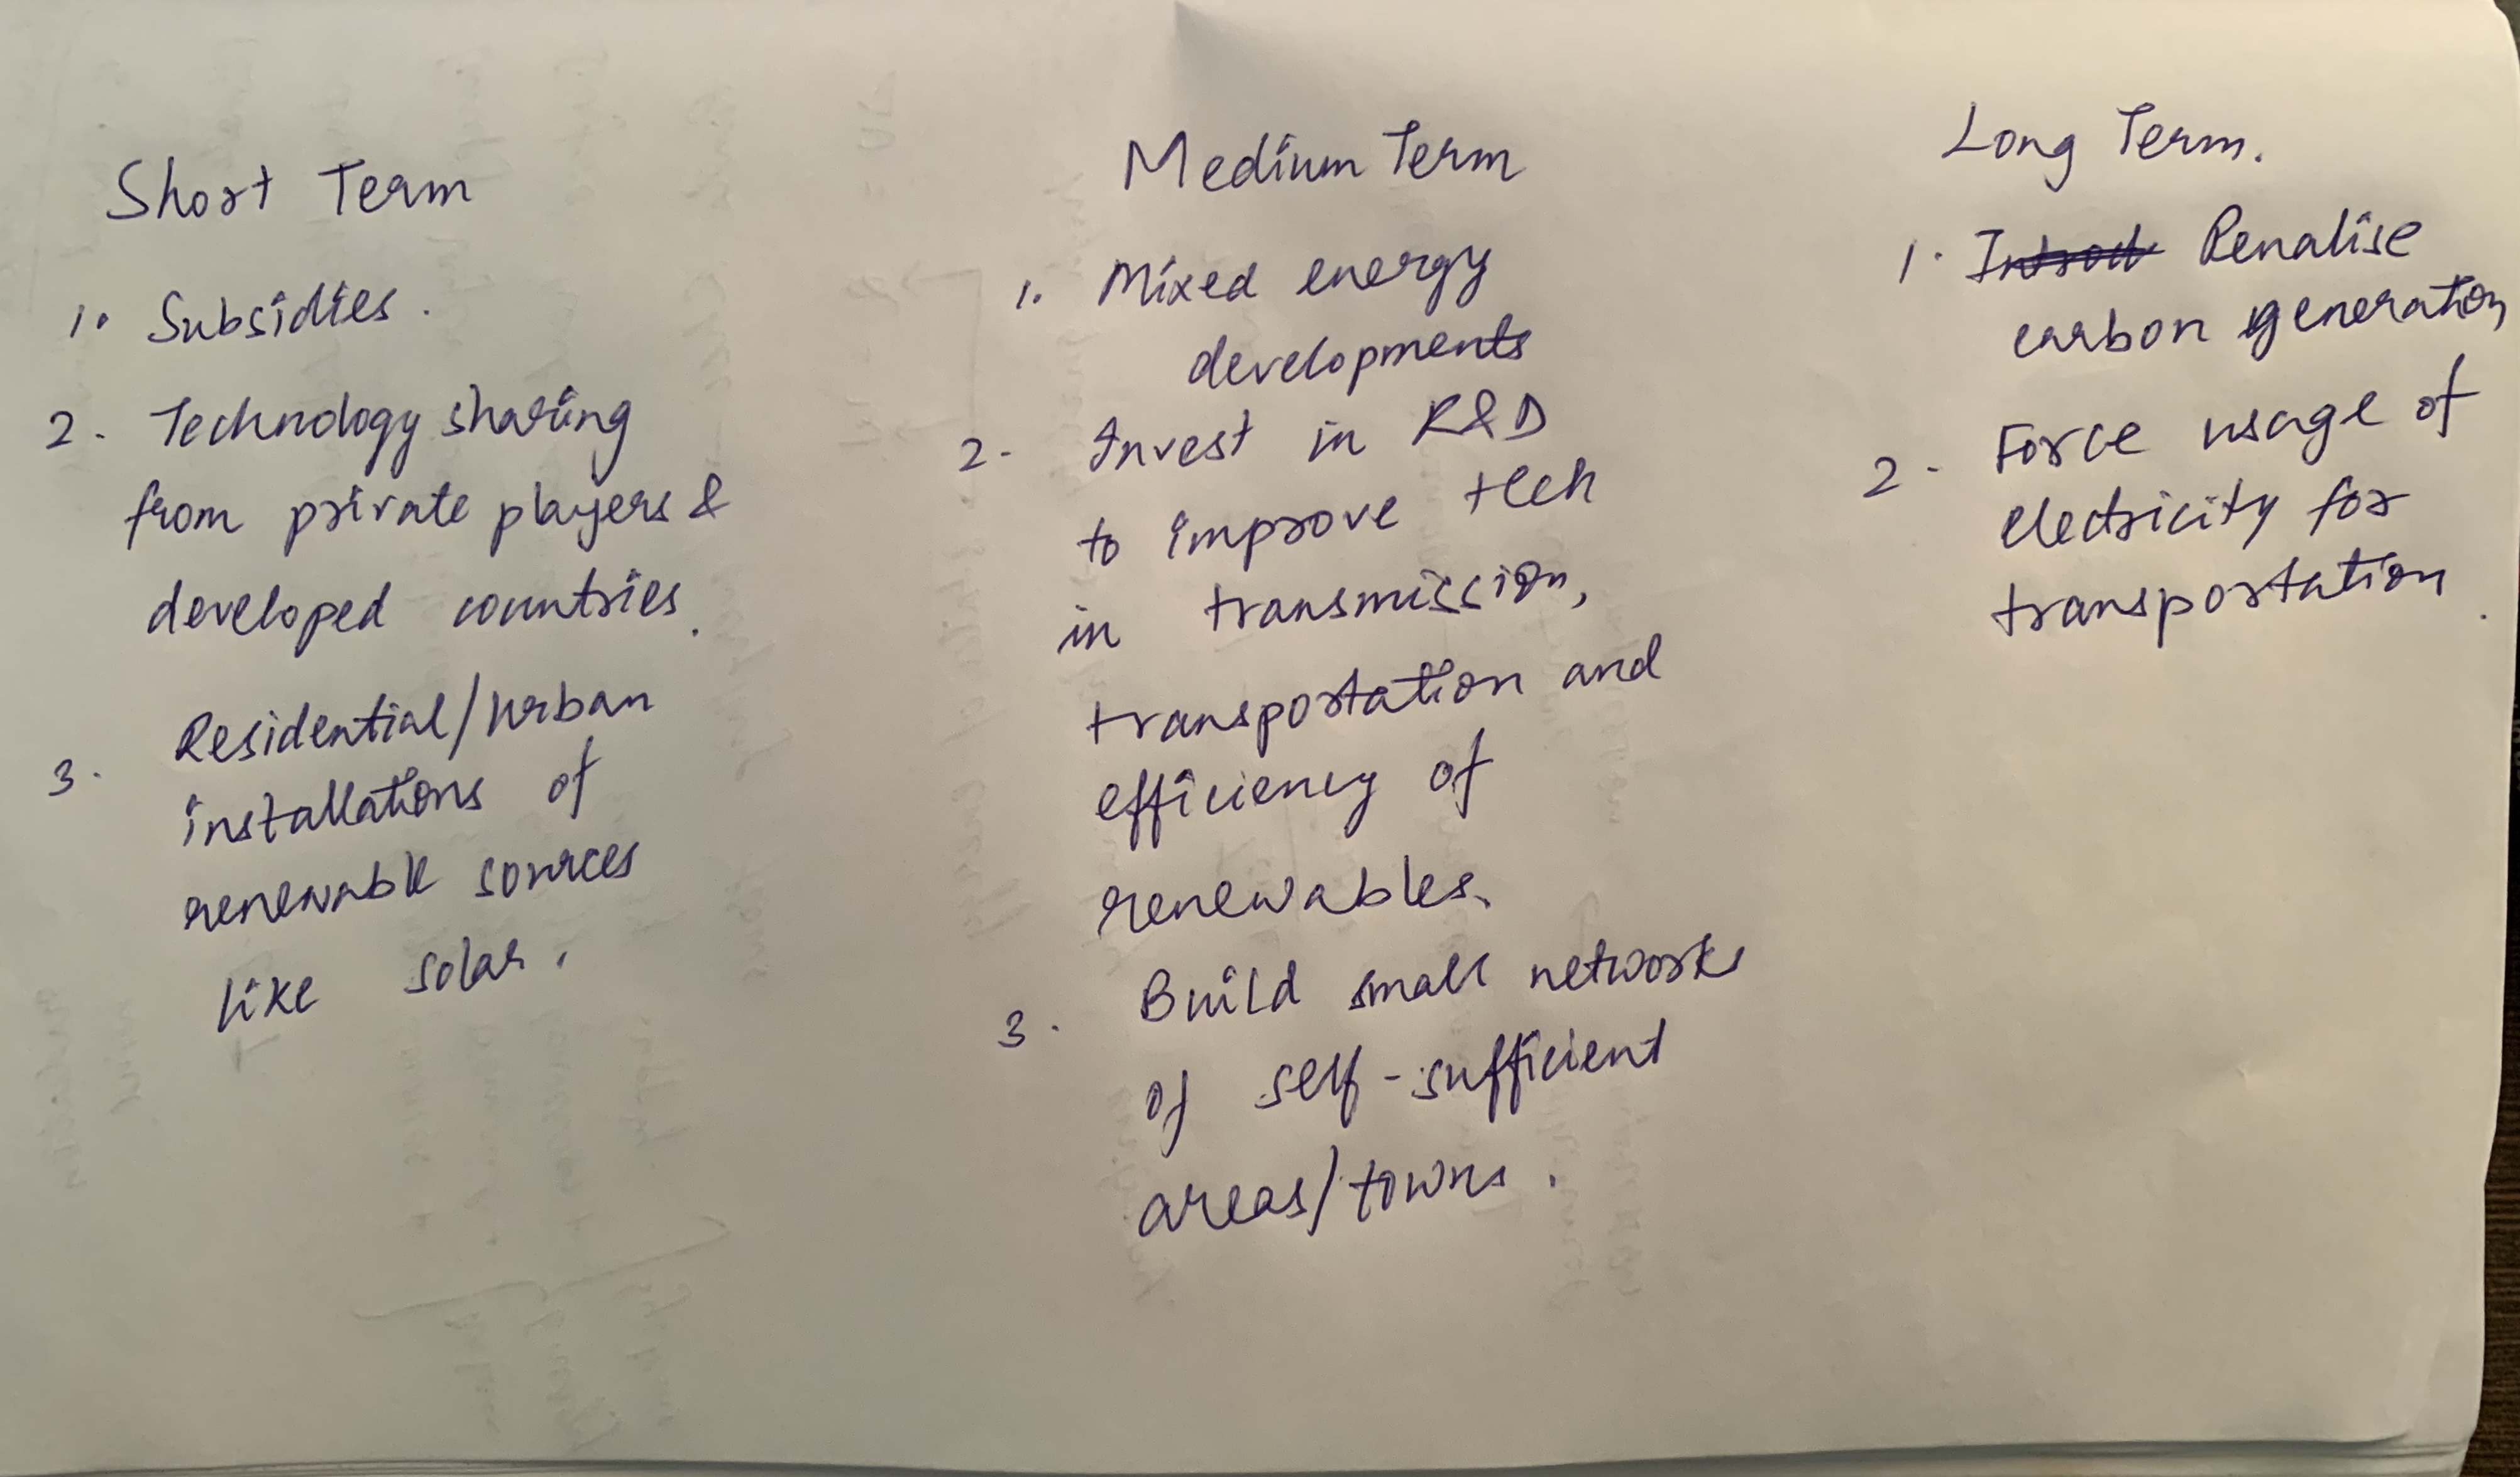 Short Term
1. Subsidies.
2. Technology sharing
from private players &
developed countries.
3. Residential/urban
installations of
renewable sources
like solar.
Medium Term
1. Mixed energy
developments
2. Invest in R&D
to improve tech
in transmission,
transportation and
efficiency of
renewables.
3. Build small networks
of self-sufficient
areas/towns.
Long Term.
1. Penalise
carbon generation
2. Force usage of
electricity for
transportation.